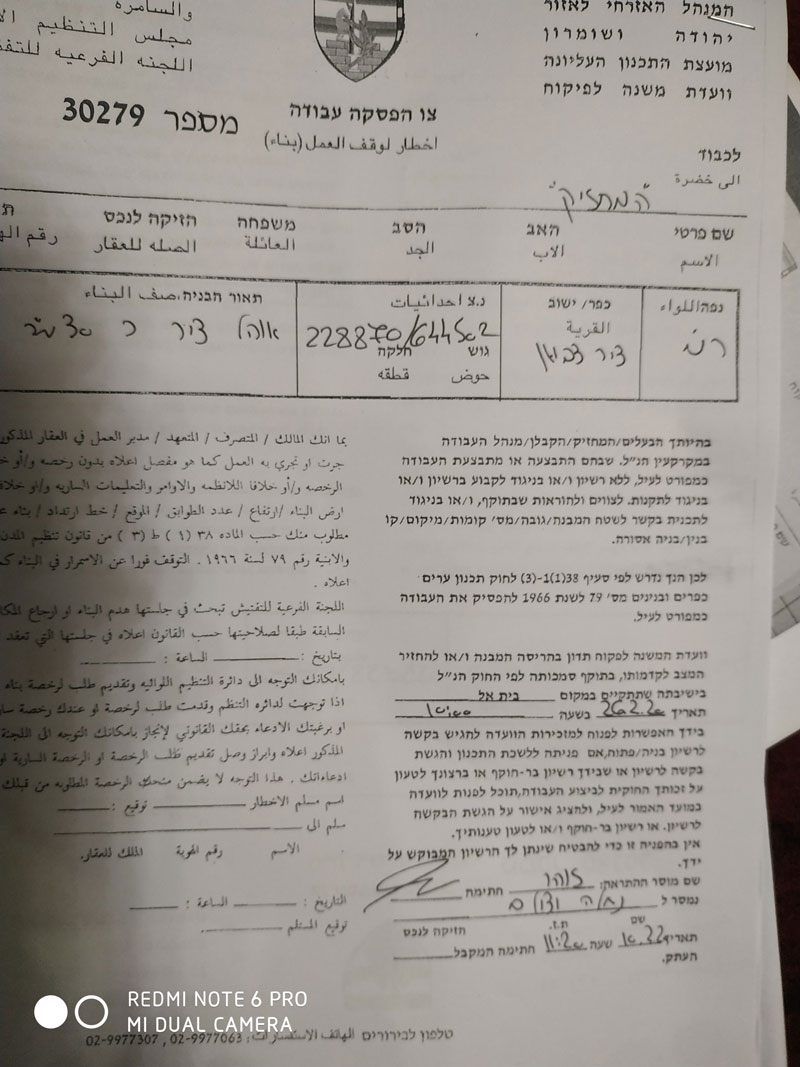 המנהל האזרחי לאזור
יהודה ושומרון
מועצת התכנון העליונה
וועדת משנה לפיקוח
والسامرة
مجلس التنظيم
اللجنه الفرعيه
צו הפסקה עבודה
מספר 30279
اخطار لوقف العمل (بناء)
לכבוד
الى حضرة
"המחזיק"
שם פרטי האב הסב משפחה הזיקה לנכס
الاسم الاب الجد العائلة الصله للعقار
נפה/לואו כפר/ ישוב נ.צ אחדאתיאת תאור הבניה
القرية
228870/644502
גוש חלקה
حوض قطقه
בהיותך הבעלים/המחזיק/הקבלן/מנהל העבודה
במקרקעין הנ"ל. שבהם התבצעה או מתבצעת העבודה
כמפורט לעיל, ללא רשיון ו/או בניגוד לקבוע ברשיון ו/או
בניגוד לתקנות. לצווים ולהוראות שבתוקף, ו/או בניגוד
לתכנית בקשר לשטח המבנה/גובה/מס' קומות/מיקום/קו
בנין/בניה אסורה.
לכן הנך נדרש לפי סעיף 38(1)-(3) לחוק תכנון ערים
כפרים ובנינים מס' 79 לשנת 1966 להפסיק את העבודה
כמפורט לעיל.
וועדת המשנה לפקוח תדון בהריסת המבנה ו/או להחזיר
המצב לקדמותו, בתוקף סמכותה לפי החוק הנ"ל
בישיבתה שתתקיים במקום בית אל
תאריך 26.2.20 בשעה 10:00
בידך האפשרות לפנות למזכירות הוועדה להגיש בקשה
לרשיון בניה/פתוח,אם פניתה ללשכת התכנון והגשת
בקשה לרשיון או שבידך רשיון בר-חוקף או ברצונך לטעון
על זכותך החוקית לביצוע העבודה,תוכל לפנות לוועדה
במועד האמור לעיל, ולהציג אישור על הגשת הבקשה
לרשיון. או רשיון בר-חוקף ו/או לטעון טענותיך.
אין בהפניה זו כדי להבטיח שינתן לך הרשיון המבוקש על
ידך.
שם מוסר ההתראה: זוהר חתימה
נמסר ל
שם ת.ז. הזיקה לנכס
תאריך שעה 11:20 חתימה המקבל
העתק.
بما انك المالك / المتصرف / المتعهد / مدير العمل في العقار المذكور
جرت او تجري به العمل كما هو مفصل اعلاه بدون رخصه و/أو
الرخصه و/أو خلافا للانظمه والاوامر والتعليمات الساريه و/او
ارض البناء /ارتفاع / عدد الطوابق / الموقع / خط ارتداد / بناء
مطلوب منك حسب الماده ٣٨ (١) ط (٣) من قانون تنظيم المدن
والابنية رقم ٧٩ لسنة ١٩٦٦ . التوقف فورا عن الاسمرار في البناء
اعلاه .
اللجنة الفرعية للتفتيش تبحث في جلستها هدم البناء او ارجاع
السابقة طبقا لصلاحيتها حسب القانون اعلاه في جلستها التي تعقد
بتاريخ : الساعة :
بامكانك التوجه الى دائرة التنظيم اللوائيه وتقديم طلب لرخصة بناء
اذا توجهت لدائرة التنظم وقدمت طلب لرخصة لو عندك رخصة
او برغبتك الادعاء بحقك القانوني لإنجاز بامكانك التوجه الى اللجنة
المذكور اعلاه وابراز وصل تقديم طلب الرخصة او الرخصة السارية
ادعاءاتك . هذا التوجه لا يضمن منحك الرخصة المطلوبه من قبلك
اسم مسلم الاخطار توقيع :
سلم الى
الاسم رقم الهوية المالك للعقار.
التاريخ : الساعة :
توقيع المستلم
טלפון לבירורים الهاتف الاستفسارات: 02-9977063 , 02-9977307
REDMI NOTE 6 PRO
MI DUAL CAMERA